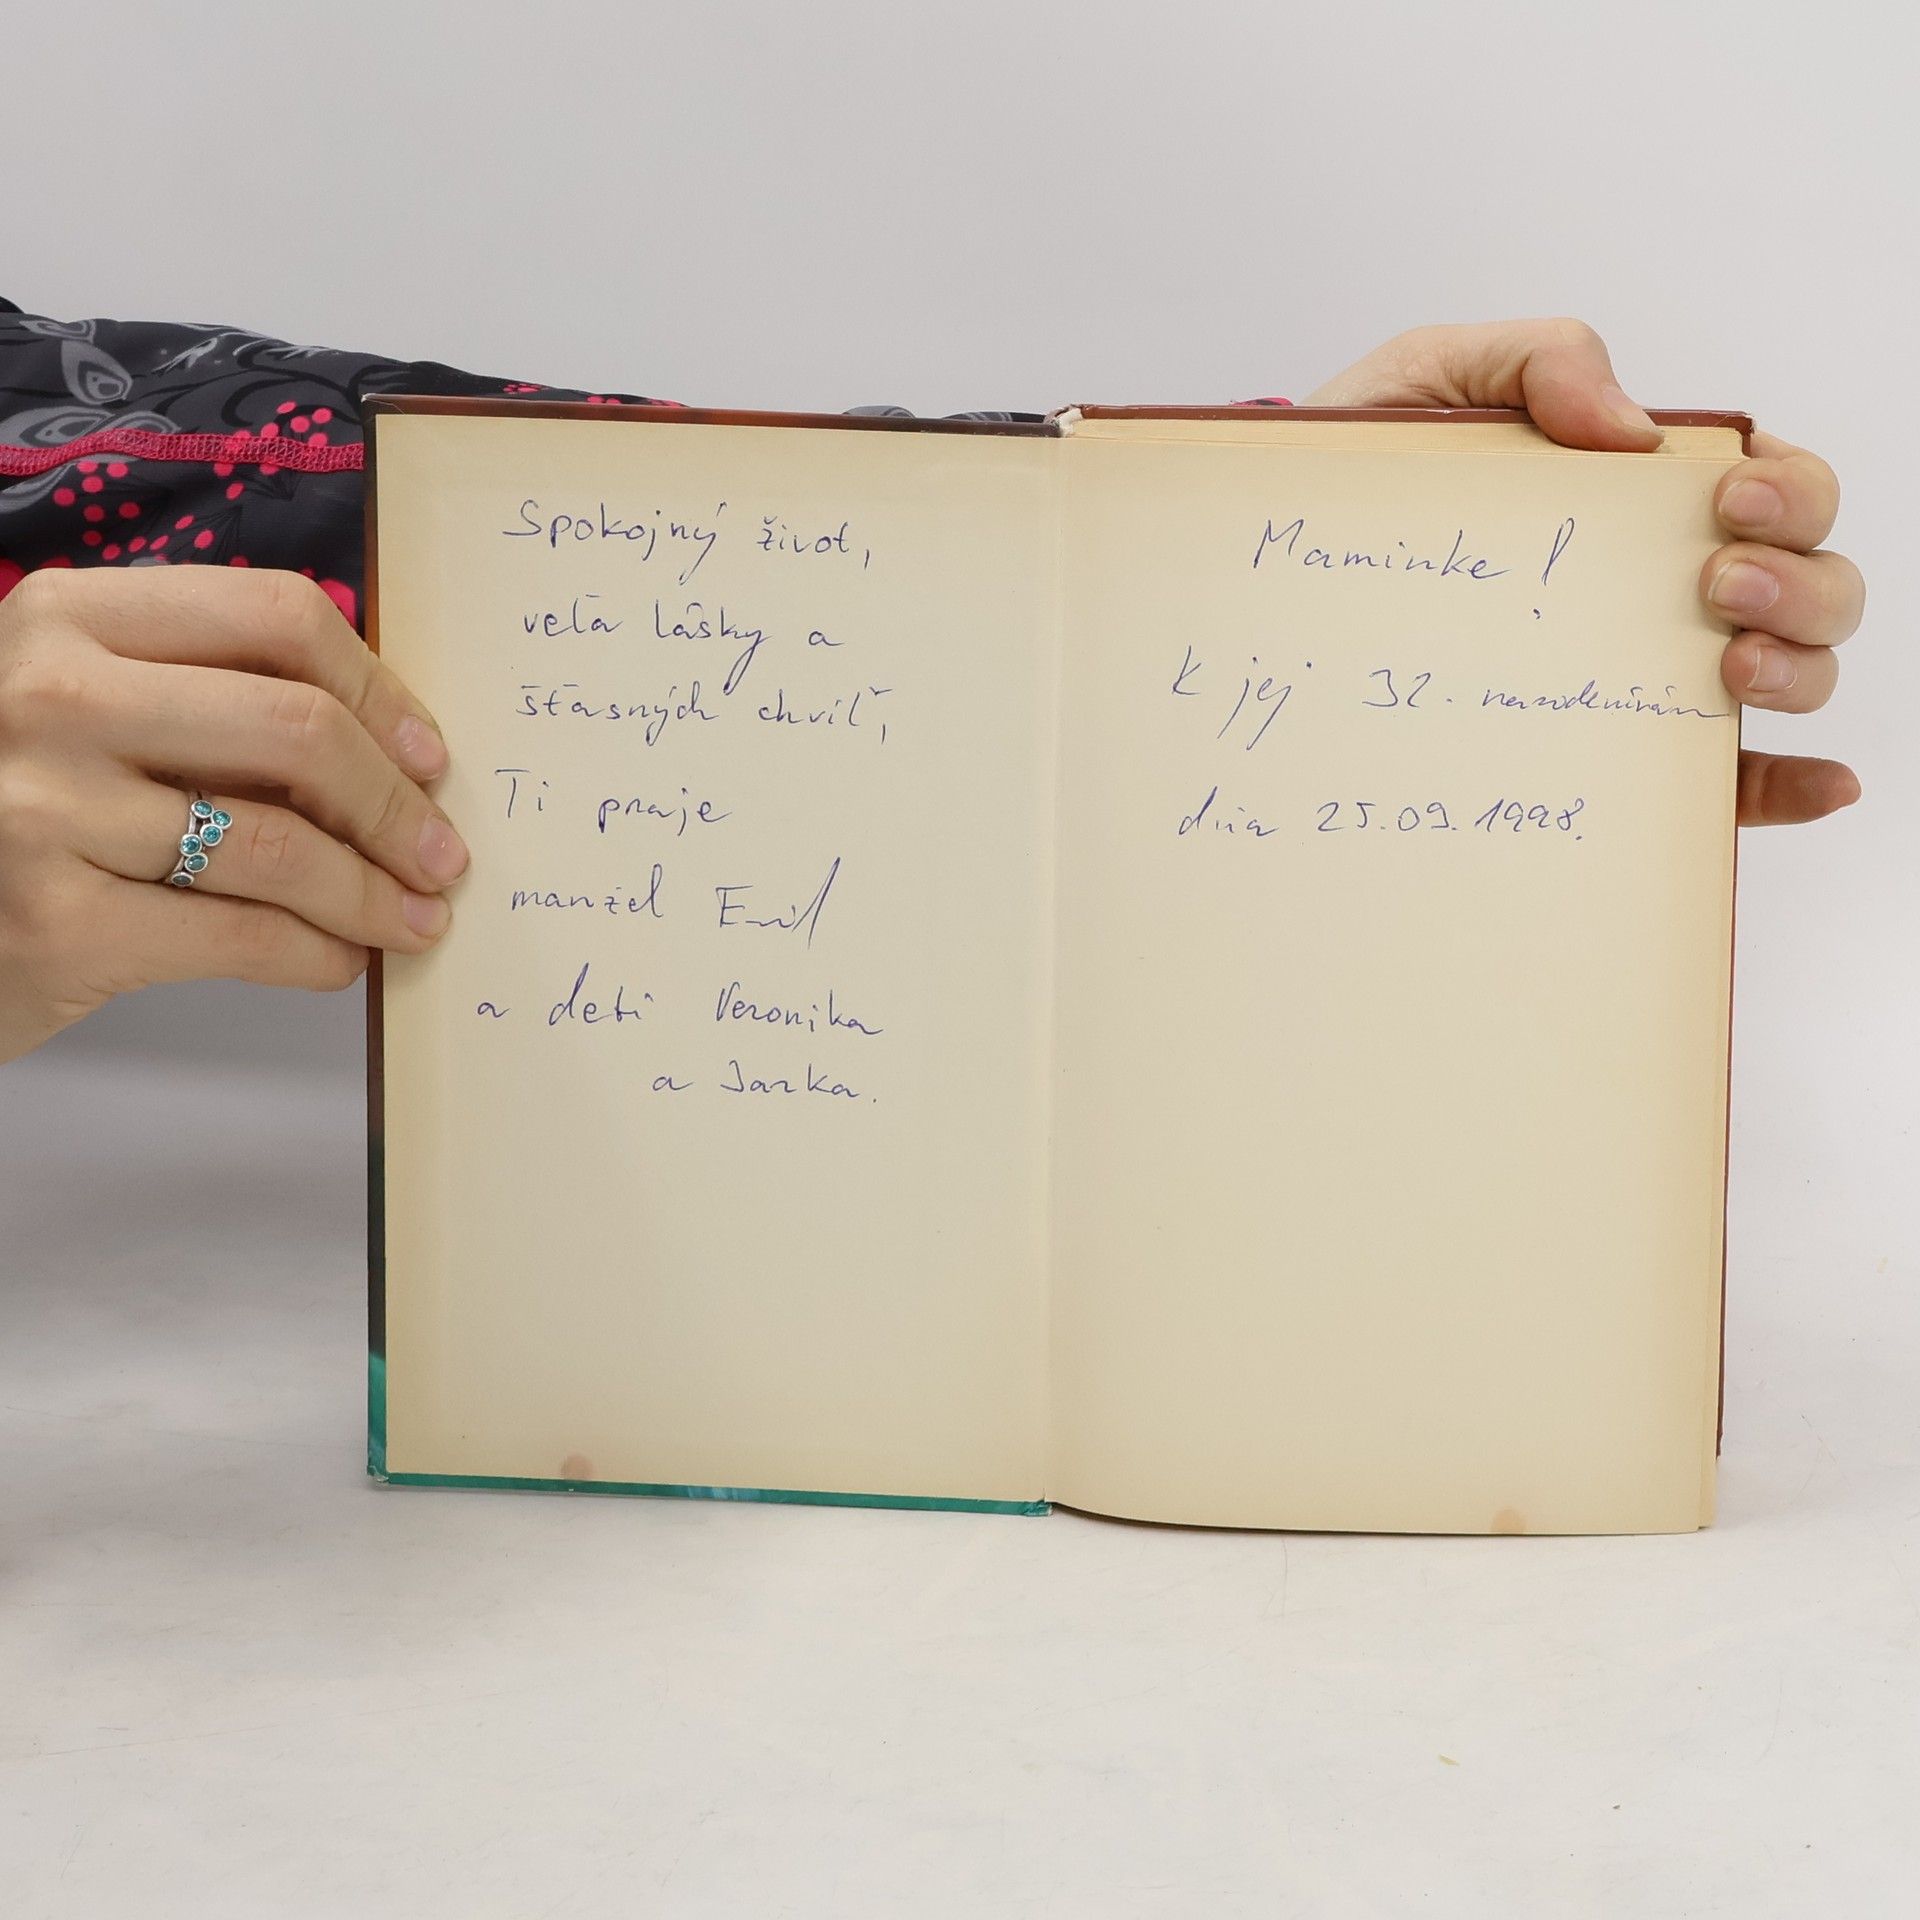 Spokojný život,
veľa lásky a
šťasných chvíľ,
Ti praje
manžel Emil
a deti Veronika
a Jarka.
Maminke!
K jej 32. narodeninám
dňa 25.09.1998.